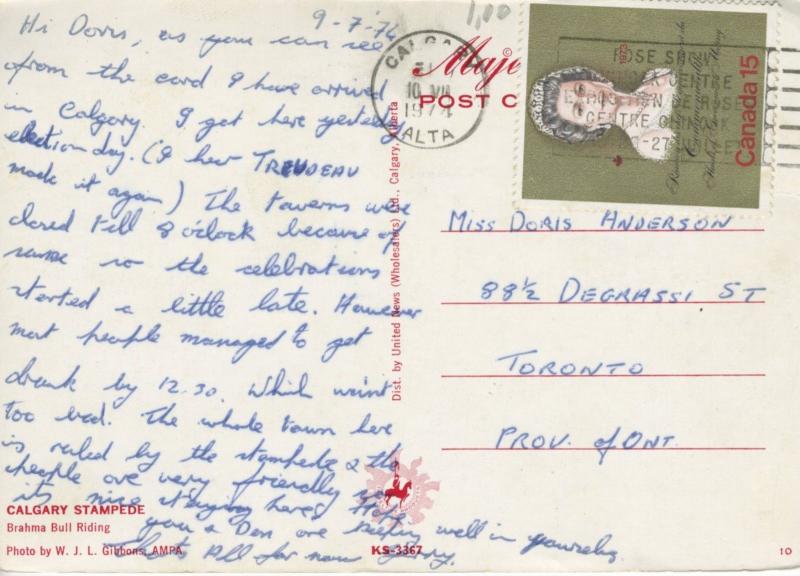 9-7-74
Hi Doris, as you can see
from the card I have arrived
in Calgary I got here yesterday
election day. (I hear TRUDEAU
made it again) The taverns were
closed till 8 o'clock because of
same so the celebrations
started a little late. However
most people managed to get
drunk by 12.30. Which wasn't
too bad. The whole town here
is ruled by the stampede & the
people are very friendly so
its nice staying here. Hope
you & Den are keeping well in yourselves.
All for now
1,00
CALGARY
10 VII
1974
ALTA
ROSE SHOW
CENTRE
EXPOSITION DE ROSES
CENTRE CHINOOK
1973
Canada 15
POST C
MISS DORIS ANDERSON
88½ DEGRASSI ST
TORONTO
PROV. of ONT.
Dist. by United News (Wholesalers) Ltd., Calgary, Alberta
CALGARY STAMPEDE
Brahma Bull Riding
Photo by W. J. L. Gibbons, AMPA
KS-3367
10